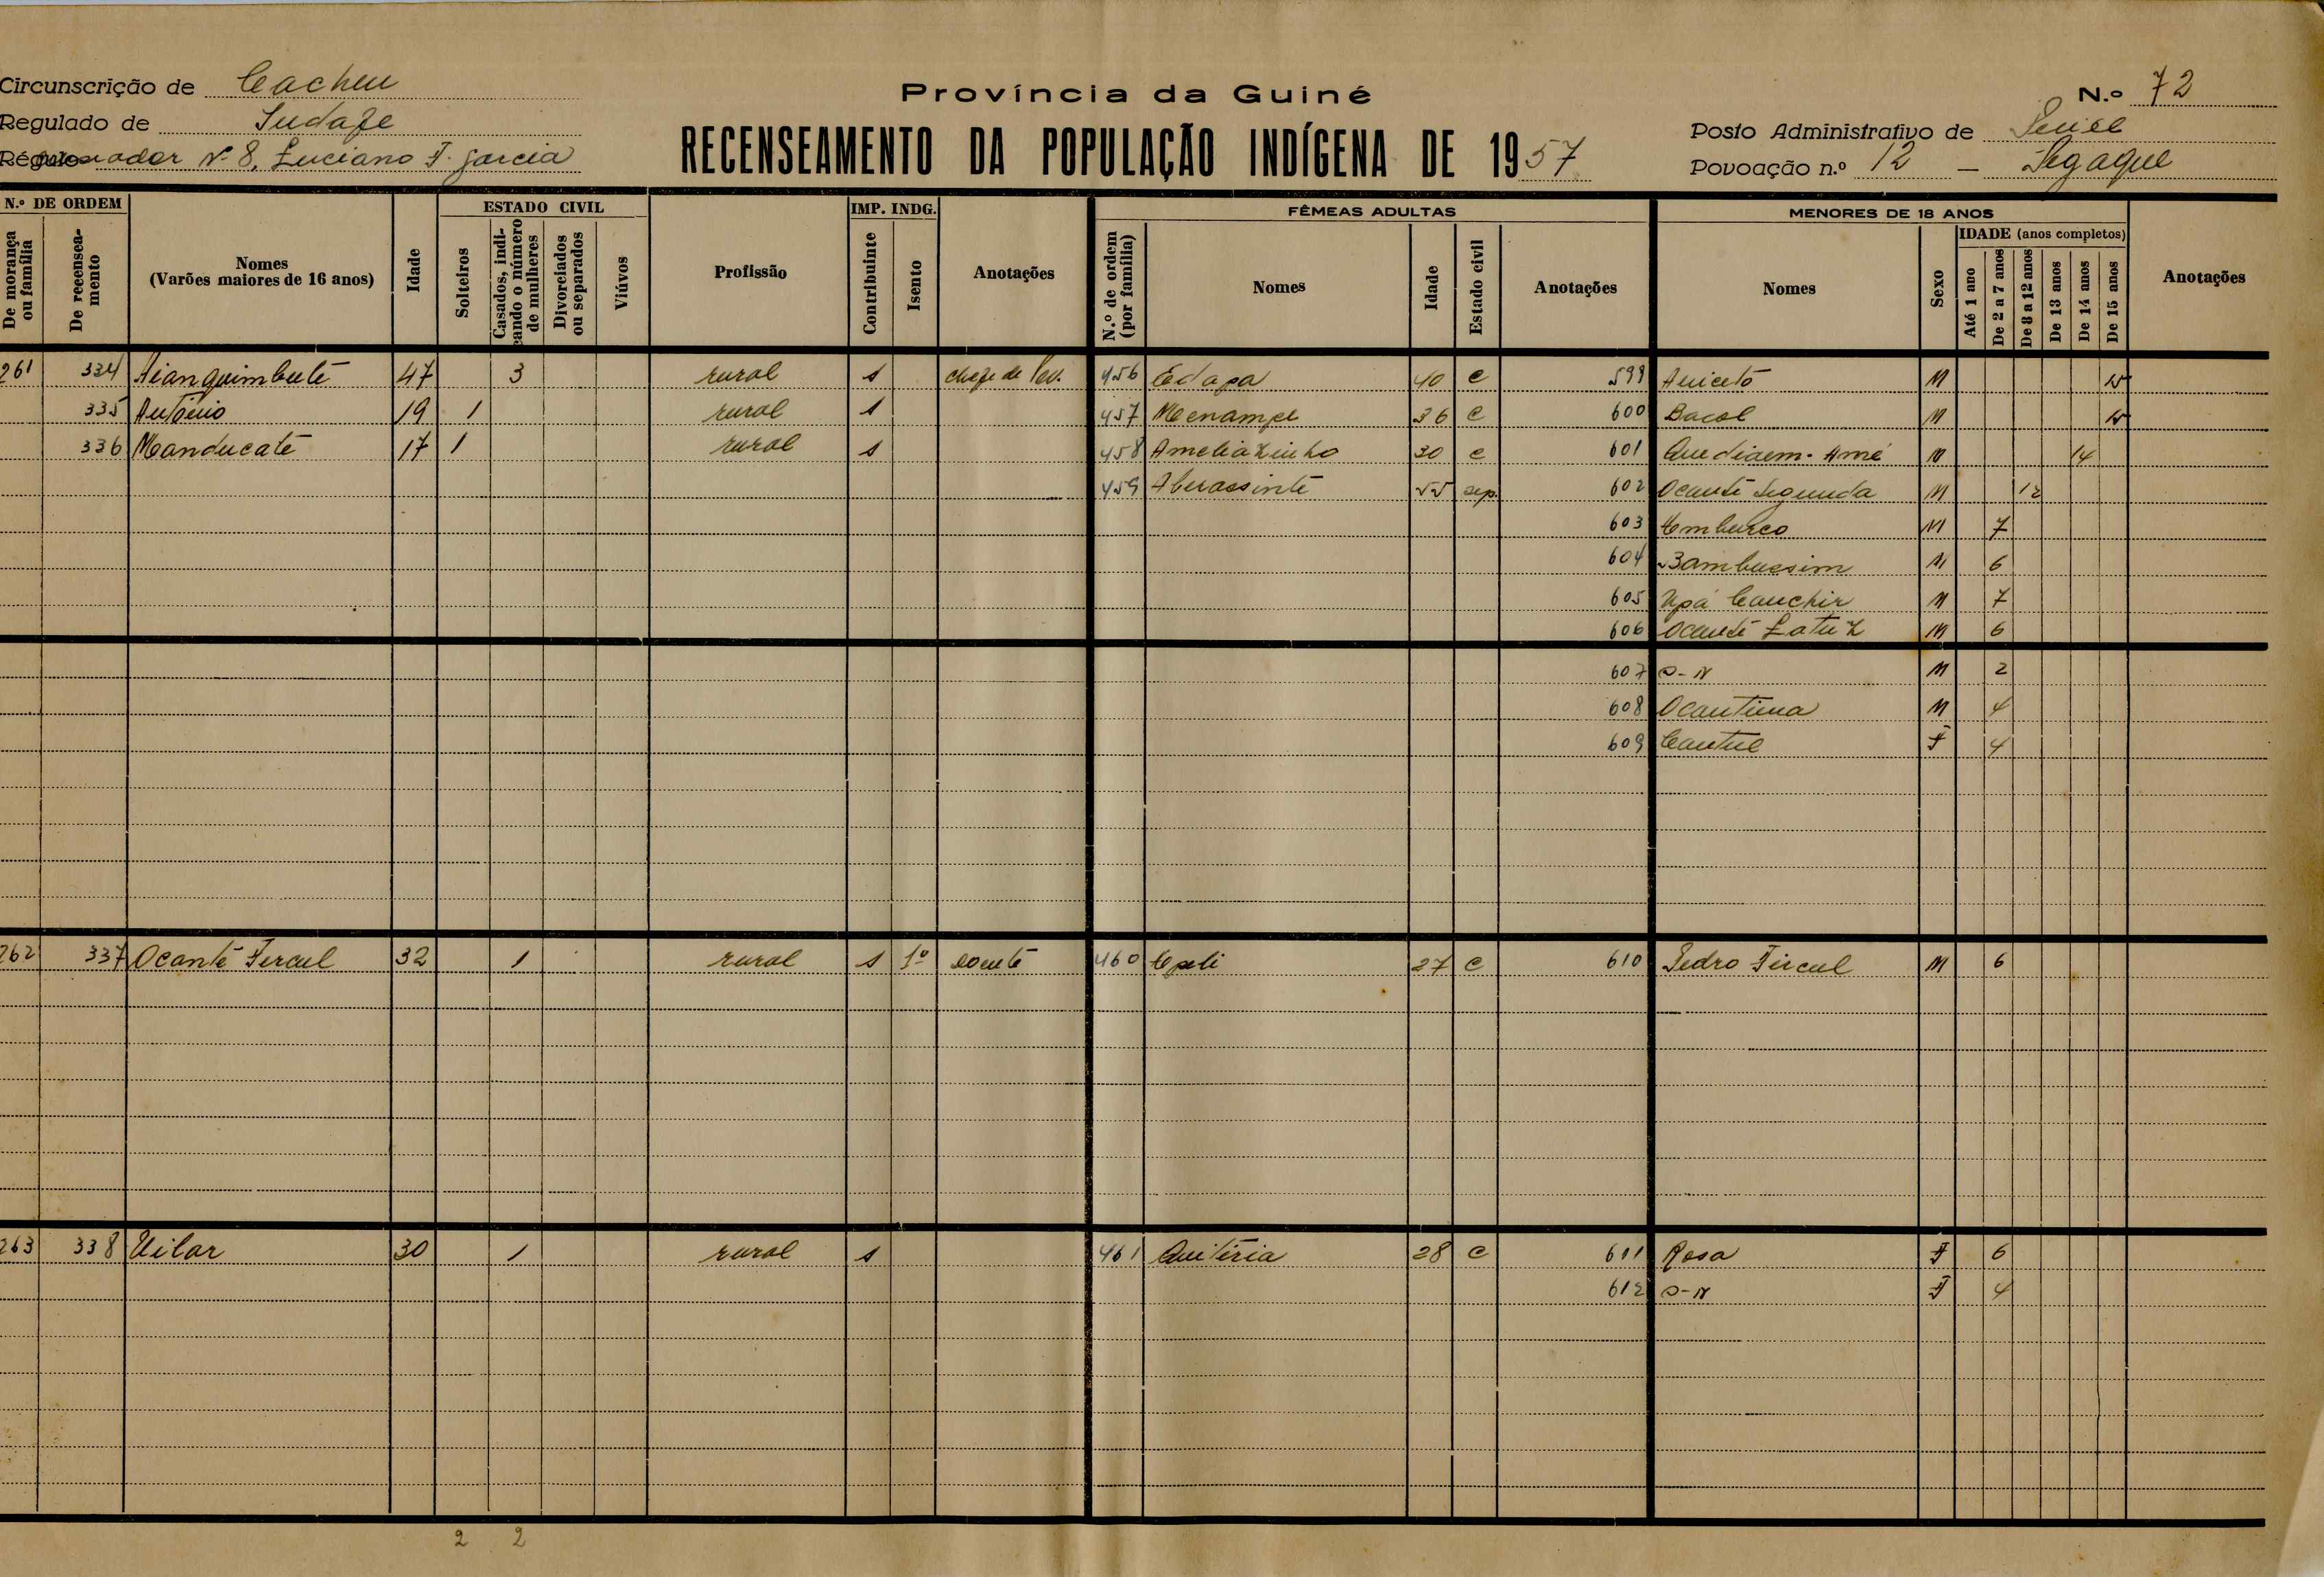 Circunscrição de Cacheu
Província da Guiné
N.º 72
Regulado de
Posto Administrativo de
Régulo N.º 8, Luciano F. Garcia
RECENSEAMENTO DA POPULAÇÃO INDÍGENA DE 1957
Povoação n.º 12 –
N.º DE ORDEM
De morança ou família
De recensea-mento
Nomes
(Varões maiores de 16 anos)
Idade
ESTADO CIVIL
Solteiros
Casados, indi-cando o número de mulheres
Divorciados ou separados
Viúvos
Profissão
IMP. INDG.
Contribuinte
Isento
Anotações
FÊMEAS ADULTAS
N.º de ordem (por família)
Nomes
Idade
Estado civil
Anotações
MENORES DE 18 ANOS
Nomes
Sexo
IDADE (anos completos)
Até 1 ano
De 2 a 7 anos
De 8 a 12 anos
De 13 anos
De 14 anos
De 15 anos
Anotações
261 334 47 3 rural s chefe de Pov. 456 Edapa 40 c 599 Aniceto M 15
335 António 19 1 rural s 457 36 c 600 Bacol M 15
336 Manducaté 17 1 rural s 458 Ameliazinho 30 c 601 M 14
459 55 sep. 602 Ocanté Segunda M 12
603 M 7
604 M 6
605 M 7
606 Ocanté M 6
607 S-N M 2
608 M 4
609 F 4
262 337 Ocanté 32 1 rural s 1º 460 27 c 610 Pedro M 6
263 338 Vilar 30 1 rural s 461 Quitéria 28 c 611 Rosa F 6
612 S-N F 4
2 2